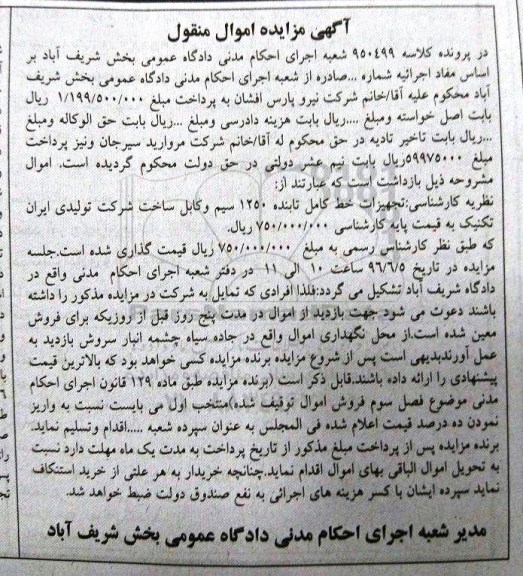 آگهی مزایده اموال منقول
در پرونده کلاسه ۹۵۰۴۹۹ شعبه اجرای احکام مدنی دادگاه عمومی بخش شریف آباد بر
اساس مفاد اجرائیه شماره ...صادره از شعبه اجرای احکام مدنی دادگاه عمومی بخش شریف
آباد محکوم علیه آقا/خانم شرکت نیرو پارس افشان به پرداخت مبلغ ۱/۱۹۹/۵۰۰/۰۰۰ ریال
بابت اصل خواسته ومبلغ ....ریال بابت هزینه دادرسی ومبلغ ...ریال بابت حق الوکاله ومبلغ
...ریال بابت تاخیر تادیه در حق محکوم له آقا/خانم شرکت مروارید سیرجان ونیز پرداخت
مبلغ ۵۹۹۷۵۰۰۰ریال بابت نیم عشر دولتی در حق دولت محکوم گردیده است. اموال
مشروحه ذیل بازداشت است که عبارتند از:
نظریه کارشناسی:تجهیزات خط کامل تابنده ۱۲۵۰ سیم وکابل ساخت شرکت تولیدی ایران
تکنیک به قیمت پایه کارشناسی ۷۵۰/۰۰۰/۰۰۰ ریال.
که طبق نظر کارشناس رسمی به مبلغ ۷۵۰/۰۰۰/۰۰۰ ریال قیمت گذاری شده است.جلسه
مزایده در تاریخ ۹۶/۶/۵ ساعت ۱۰ الی ۱۱ در دفتر شعبه اجرای احکام مدنی واقع در
دادگاه شریف آباد تشکیل می گردد:فلذا افرادی که تمایل به شرکت در مزایده مذکور را داشته
باشند دعوت می شود جهت بازدید از اموال در مدت پنج روز قبل از روزیکه برای فروش
معین شده است.از محل نگهداری اموال واقع در جاده سیاه چشمه انبار سروش بازدید به
عمل آورندبدیهی است پس از شروع مزایده برنده مزایده کسی خواهد بود که بالاترین قیمت
پیشنهادی را ارائه داده باشند.قابل ذکر است (برنده مزایده طبق ماده ۱۲۹ قانون اجرای احکام
مدنی موضوع فصل سوم فروش اموال توقیف شده)منتخب اول می بایست نسبت به واریز
نمودن ده درصد قیمت اعلام شده فی المجلس به عنوان سپرده شعبه .....اقدام وتسلیم نماید.
برنده مزایده پس از پرداخت مبلغ مذکور از تاریخ پرداخت به مدت یک ماه مهلت دارد نسبت
به تحویل اموال الباقی بهای اموال اقدام نماید.چنانچه خریدار به هر علتی از خرید استنکاف
نماید سپرده ایشان با کسر هزینه های اجرائی به نفع صندوق دولت ضبط خواهد شد.
مدیر شعبه اجرای احکام مدنی دادگاه عمومی بخش شریف آباد